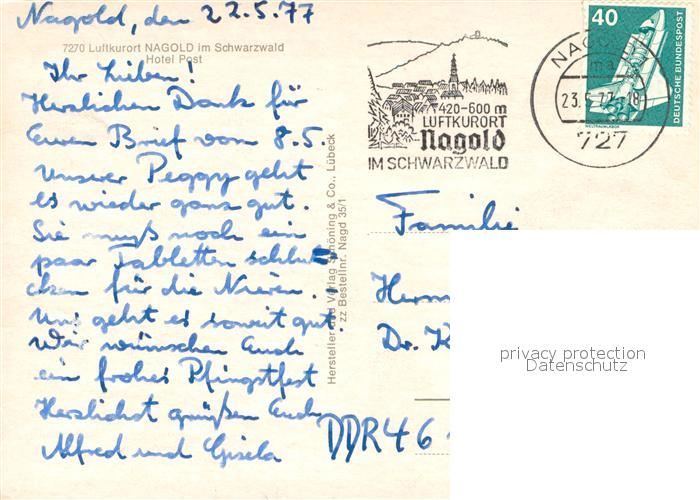 Nagold, den 22.5.77
7270 Luftkurort NAGOLD im Schwarzwald
Hotel Post
Ihr Lieben!
Herzlichen Dank für
Euren Brief vom 8.5.
Unserer Peggy geht
es wieder ganz gut.
Sie muß noch ein
paar Tabletten schluk-
cken für die Nieren.
Uns geht es soweit gut.
Wir wünschen Euch
ein frohes Pfingstfest
Herzlichst grüßen Euch
Alfred und Gisela
Hersteller und Verlag Schöning & Co., Lübeck
zz Bestellnr. Nagd 35/1
420-600 m
LUFTKURORT
Nagold
IM SCHWARZWALD
NAGOLD
ma
23.5.77-18
727
40
DEUTSCHE BUNDESPOST
WELTRAUMLABOR
Familie
Herm
Dr. K
DDR 46
privacy protection
Datenschutz